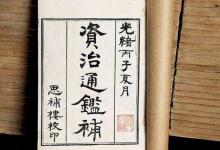 光緒丙子夏月
資治通鑑補
思補樓校印